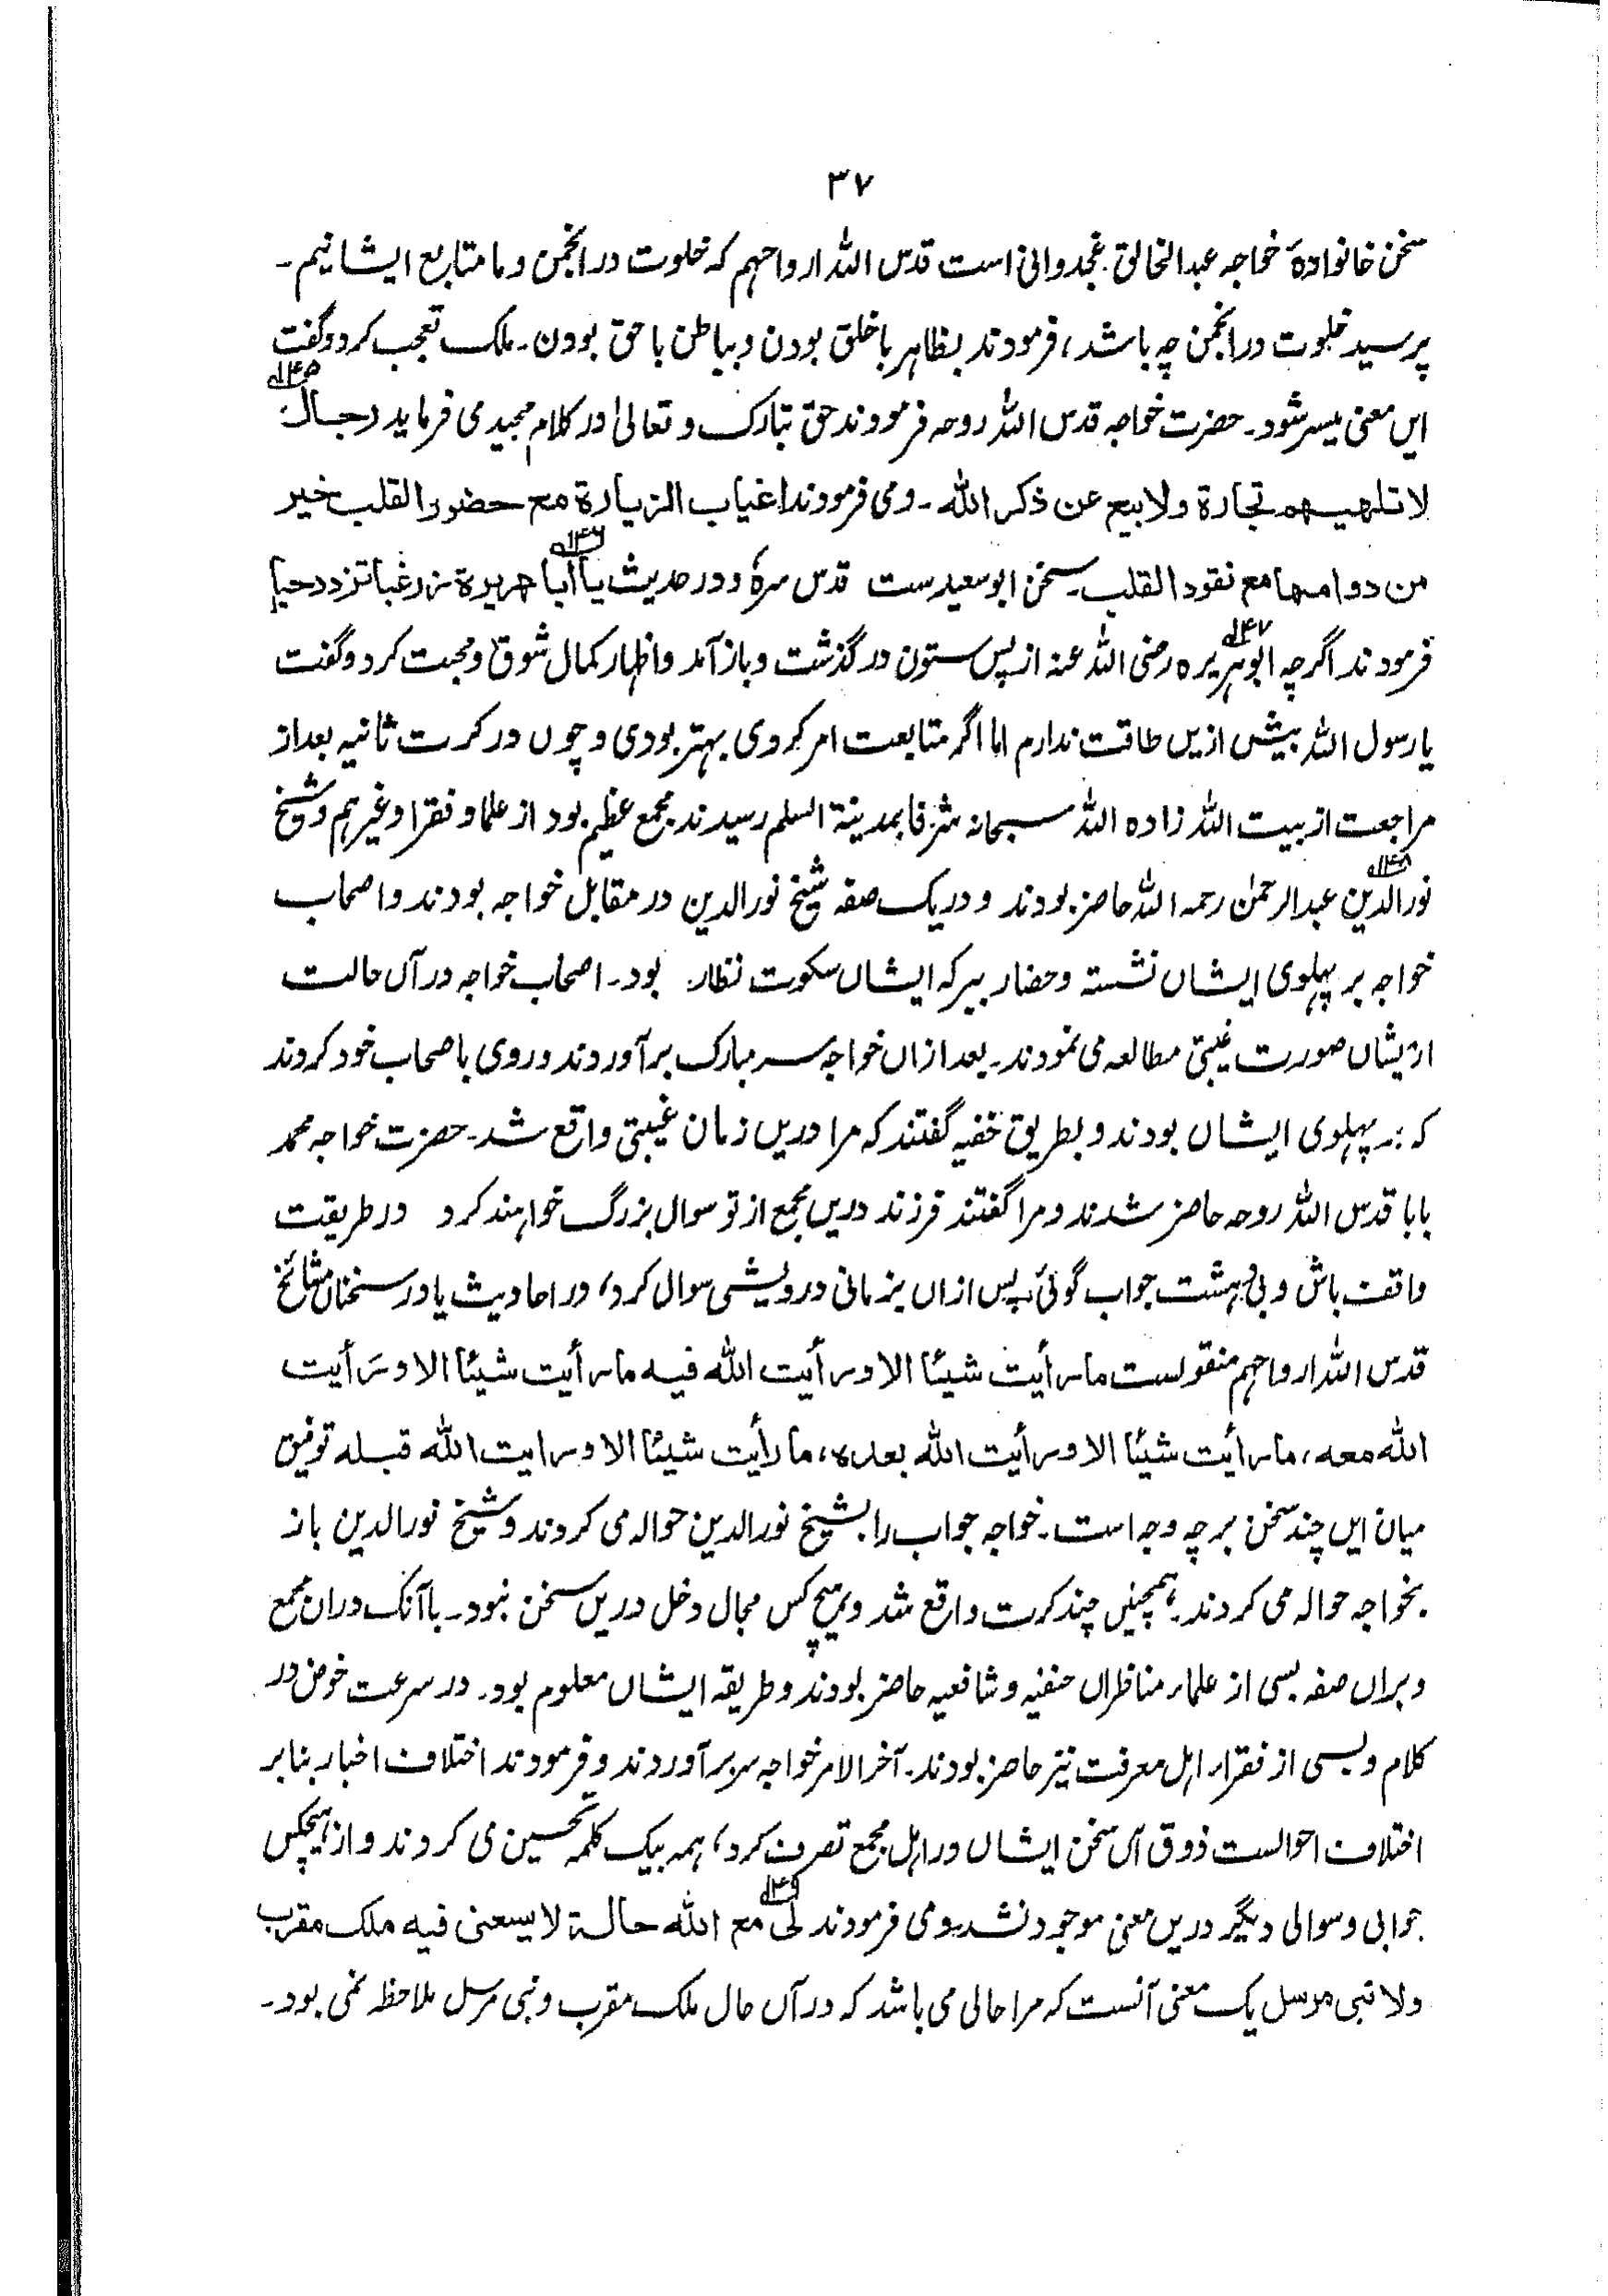 ۳۷
سخن خانوادهٔ خواجه عبدالخالق غجدوانی است قدس الله ارواحهم که خلوت در انجمن و ما متابع ایشانیم ۔
پرسید خلوت در انجمن چه باشد، فرمودند بظاهر با خلق بودن و بباطن با حق بودن۔ ملک تعجب کرد و گفت
این معنی میسر شود۔ حضرت خواجه قدس الله روحه فرمودند حق تبارک و تعالیٰ در کلام مجید می فرماید رجال ۱۴۵
لا تلهیهم تجارة ولا بیع عن ذکر الله ۔ ومی فرمودند اغیاب الزیارة مع حضور القلب خیر
من دوامها مع نفود القلب۔ سخن ابوسعید ست قدس سرهٗ و در حدیث ۱۴۶ یا ابا هریرة زر غبا تزدد حبا
فرمودند اگرچه ابوهریره ۱۴۷ رضی الله عنه از پس ستون در گذشت و باز آمد و اظهار کمال شوق و محبت کرد و گفت
یا رسول الله بیش ازیں طاقت ندارم اما اگر متابعت امر کردی بهتر بودی و چوں در کرت ثانیه بعد از
مراجعت از بیت الله زاده الله سبحانه شرفا بمدینة السلم رسیدند مجمع عظیم بود از علما و فقرا و غیرهم و شیخ
نورالدین ۱۴۸ عبدالرحمٰن رحمه الله حاضر بودند و در یک صفه شیخ نورالدین در مقابل خواجه بودند و اصحاب
خواجه بر پهلوی ایشاں نشسته و حضار ببرکه ایشاں سکوت نظار بود۔ اصحاب خواجه در آں حالت
از یشاں صورت غیبتی مطالعه می نمودند۔ بعد ازاں خواجه سر مبارک برآوردند و روی باصحاب خود کردند
که بر پهلوی ایشاں بودند و بطریق خفیه گفتند که مرا دریں زمان غیبتی واقع شد۔ حضرت خواجه محمد
بابا قدس الله روحه حاضر شدند و مرا گفتند فرزند دریں مجمع از تو سوال بزرگ خواهند کرد در طریقت
واقف باش و بی دهشت جواب گوئی، پس ازاں بزمانی درویشی سوال کرد، در احادیث یا در سخنان مشائخ
قدس الله ارواحهم منقولست ما رأیت شیئا الا ورأیت الله فیه ما رأیت شیئا الا ورأیت
الله معه، ما رأیت شیئا الا ورأیت الله بعده، ما رأیت شیئا الا ورایت الله قبله توفیق
میان ایں چند سخن برچه وجه است۔ خواجه جواب را بشیخ نورالدین حواله می کردند و شیخ نورالدین باز
بخواجه حواله می کردند، همچنیں چند کرت واقع شد و هیچ کس مجال دخل دریں سخن نبود۔ با آنک دران مجمع
و براں صفه بسی از علماء مناظراں حنفیه و شافعیه حاضر بودند و طریقه ایشاں معلوم بود۔ در سرعت خوض در
کلام و بسی از فقراء اهل معرفت نیز حاضر بودند۔ آخر الامر خواجه سر برآوردند و فرمودند اختلاف اخبار بنا بر
اختلاف احوالست ذوق آں سخن ایشاں در اهل مجمع تصرف کرد، همه بیک کلمه تحسین می کردند و از هیچکس
جوابی و سوالی دیگر دریں معنی موجود نشد ومی فرمودند ۱۴۹ لی مع الله حالة لا یسعنی فیه ملک مقرب
ولا نبی مرسل یک معنی آنست که مرا حالی می باشد که در آں حال ملک مقرب و نبی مرسل ملاحظه نمی بود۔